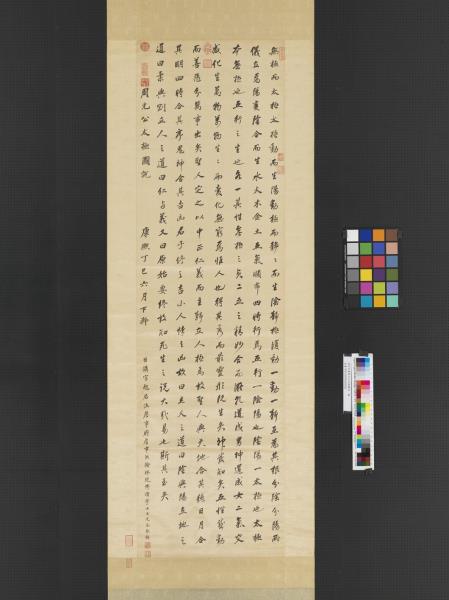 無極而太極太極動而生陽動極而靜〻而生陰靜極復動一動一靜互為其根分陰分陽兩
儀立焉陽變陰合而生水火木金土五氣順布四時行焉五行一陰陽也陰陽一太極也太極
本無極也五行之生也各一其性無極之真二五之精妙合而凝乾道成男坤道成女二氣交
感化生萬物萬物生〻而變化無窮焉惟人也得其秀而最靈形既生矣神發知矣五性感動
而善惡分萬事出矣聖人定之以中正仁義而主靜立人極焉故聖人與天地合其德日月合
其明四時合其序鬼神合其吉凶君子修之吉小人悖之凶故曰立天之道曰陰與陽立地之
道曰柔與剛立人之道曰仁與義又曰原始要終故知死生之說大哉易也斯其至矣
周元公太極圖說 康熙丁巳六月下澣
日講官起居注詹事府詹事兼翰林院侍讀學士